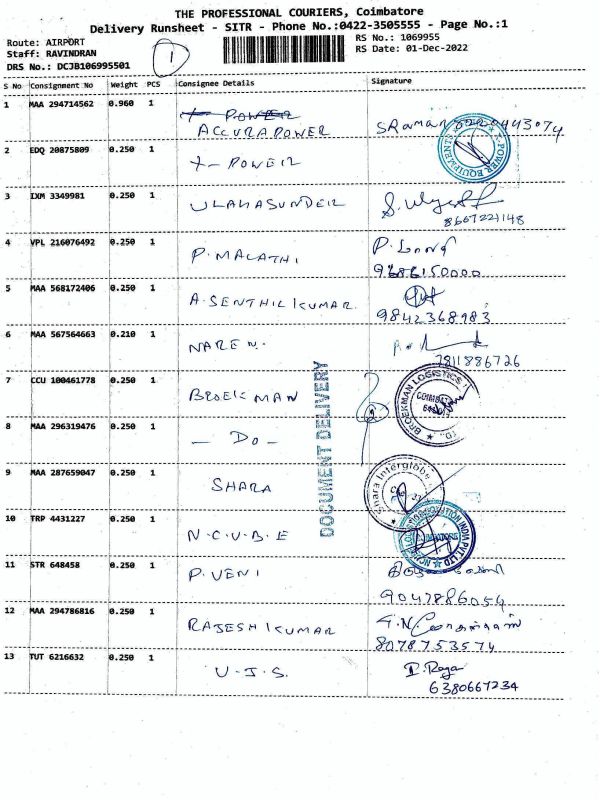 THE PROFESSIONAL COURIERS, Coimbatore
Delivery Runsheet - SITR - Phone No.:0422-3505555 - Page No.:1
Route: AIRPORT
Staff: RAVINDRAN
DRS No.: DCJB106995501
1
RS No.: 1069955
RS Date: 01-Dec-2022
S No Consignment No Weight PCS Consignee Details Signature
1 MAA 294714562 0.960 1 X POWER
ACCURAPOWER
2 EDQ 20875809 0.250 1 X-POWER
POWER EQUIPMENTS
3 IXM 3349981 0.250 1 ULAHASUNDER
8667221148
4 VPL 216076492 0.250 1 P. MALATHI P. மாலதி
9686150000
5 MAA 568172406 0.250 1 A. SENTHIL KUMAR
9842368983
6 MAA 567564663 0.210 1 NAREN.
7811886726
7 CCU 100461778 0.250 1 BROEKMAN 2
BROEKMAN LOGISTICS
DOCUMENT DELIVERY
8 MAA 296319476 0.250 1 - DO -
9 MAA 287659047 0.250 1 SHARA
Shara Interglobe
10 TRP 4431227 0.250 1 N.C.U.B.E
11 STR 648458 0.250 1 P. VENI
9047886054
12 MAA 294786816 0.250 1 RAJESH KUMAR
8078753574
13 TUT 6216632 0.250 1 U.J.S. P. Raga
6380667234